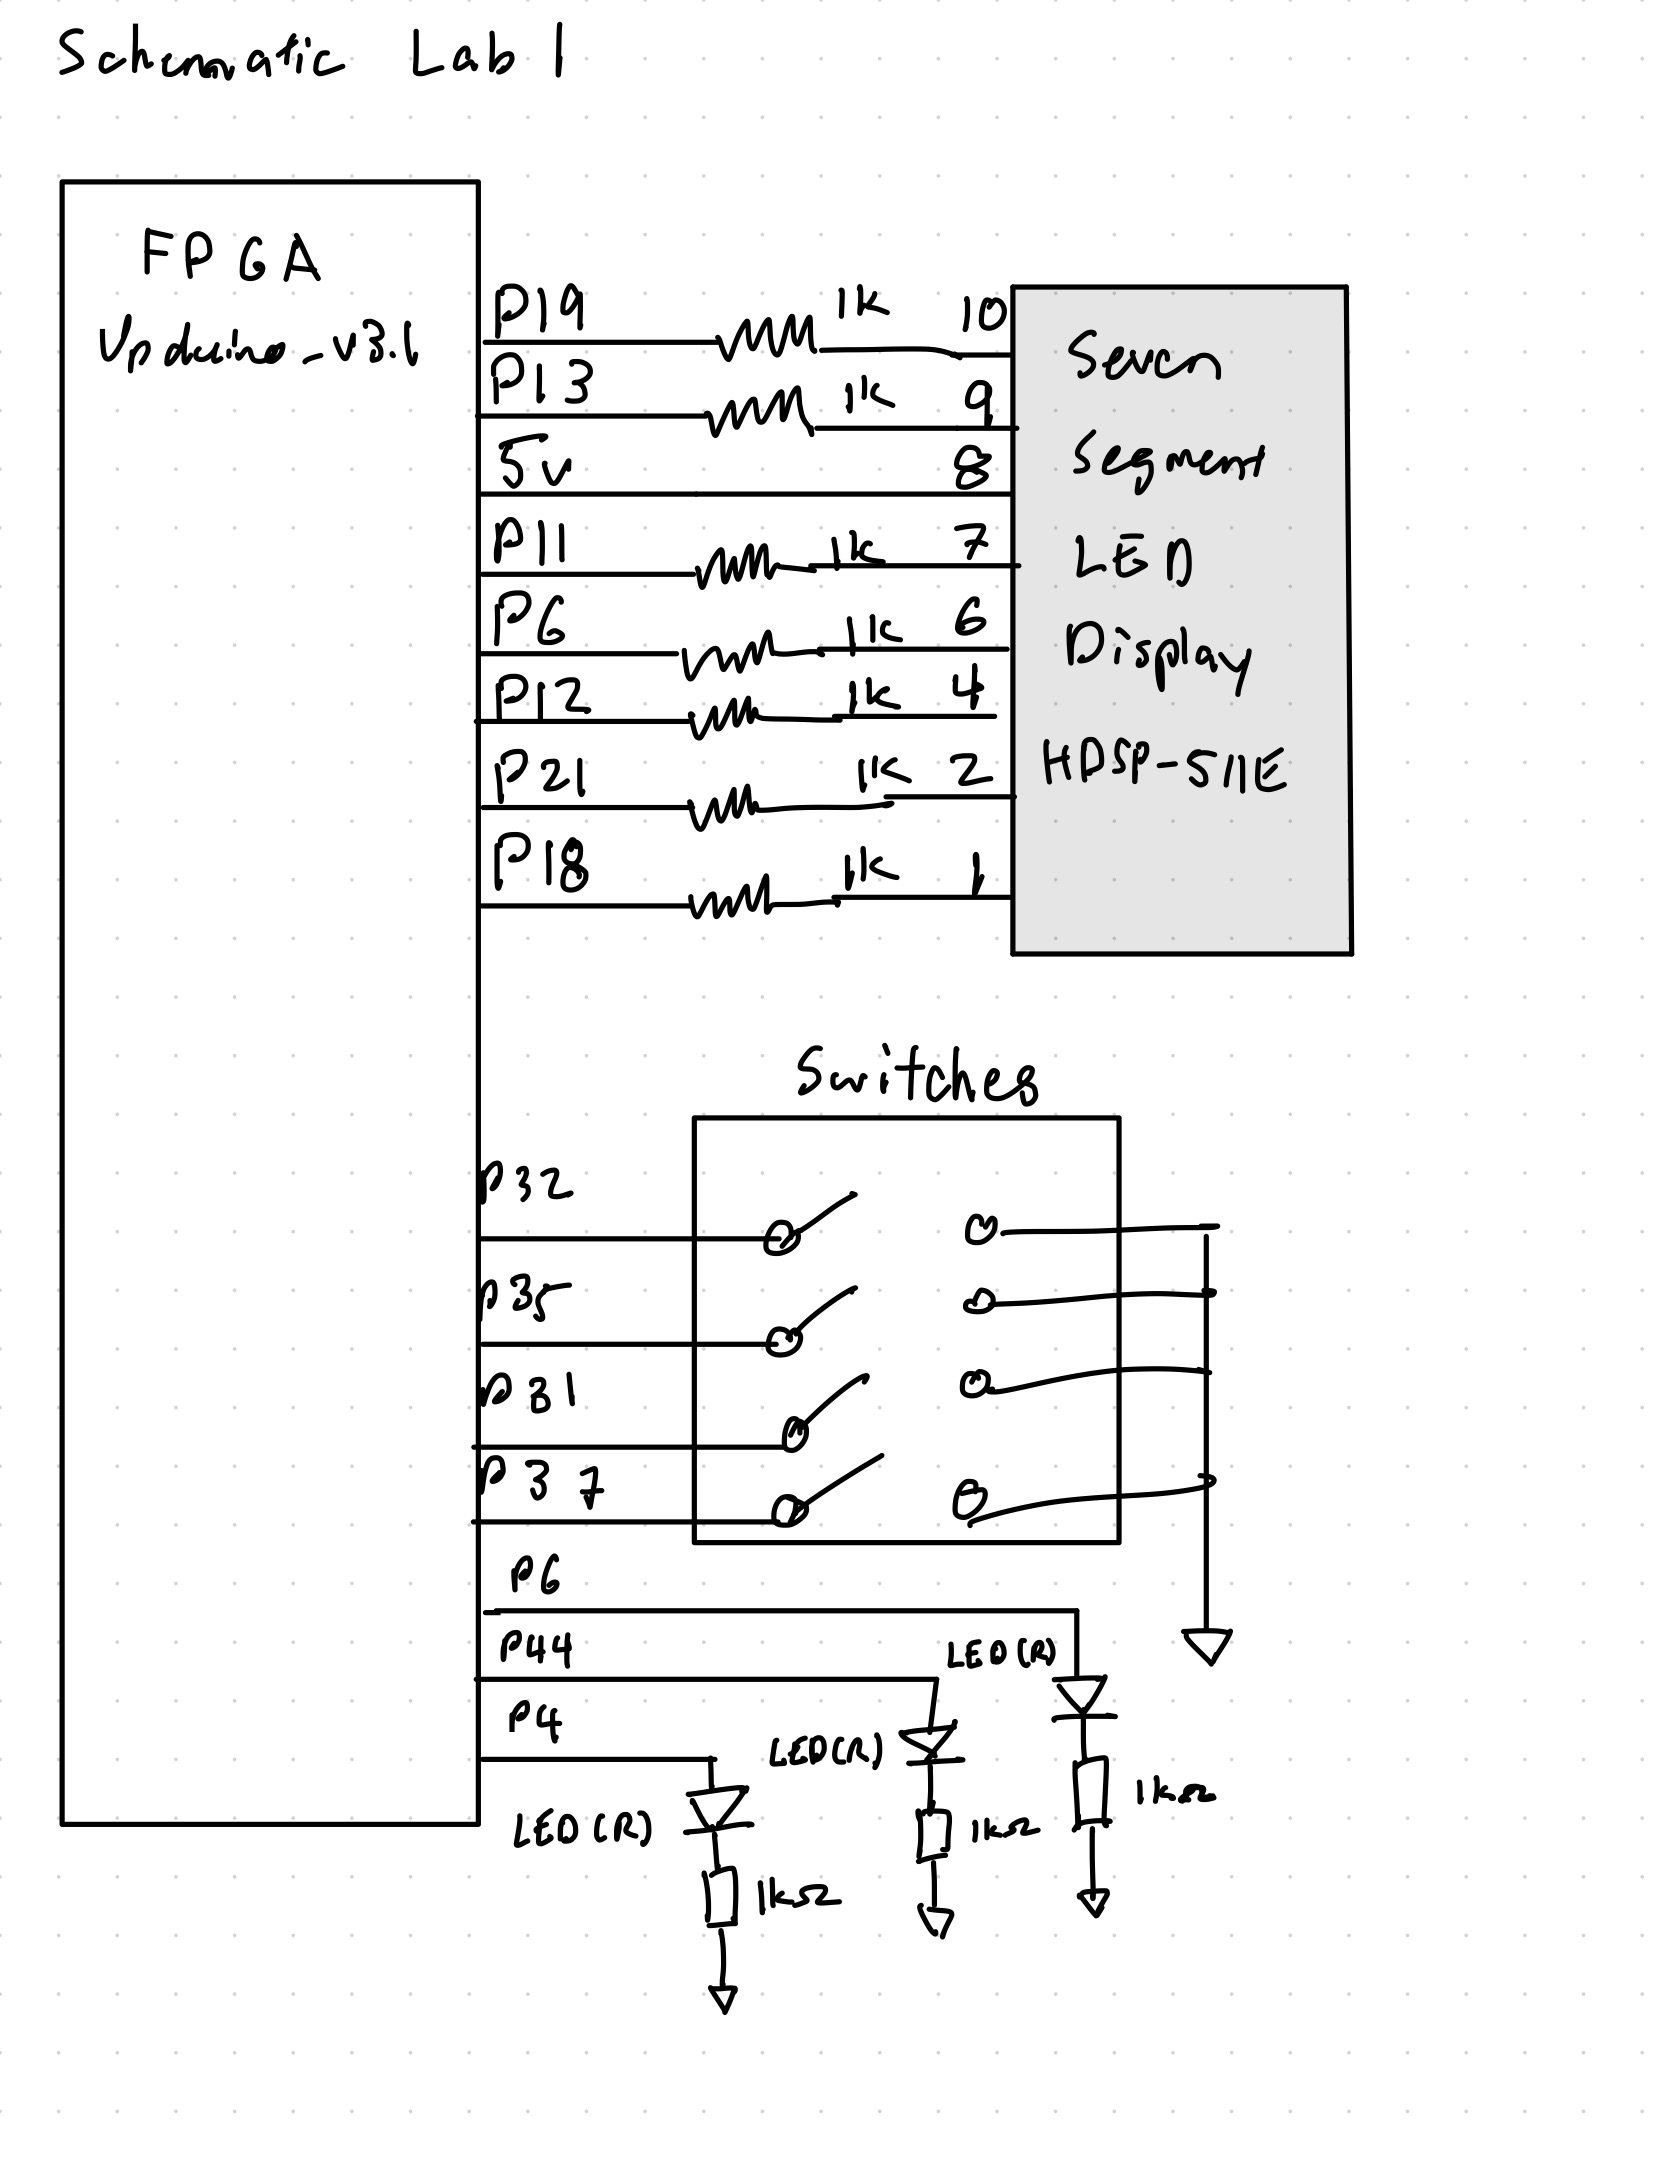 Schematic Lab 1
FPGA
Upduino_v3.1
P19 1k 10
P13 1k 9
5v 8
P11 1k 7
P6 1k 6
P12 1k 4
P21 1k 2
P18 1k 1
Seven
Segment
LED
Display
HDSP-511E
Switches
P32
P35
P31
P37
P6
P44
LED (R)
P4
LED (R)
1kΩ
LED (R)
1kΩ
1kΩ